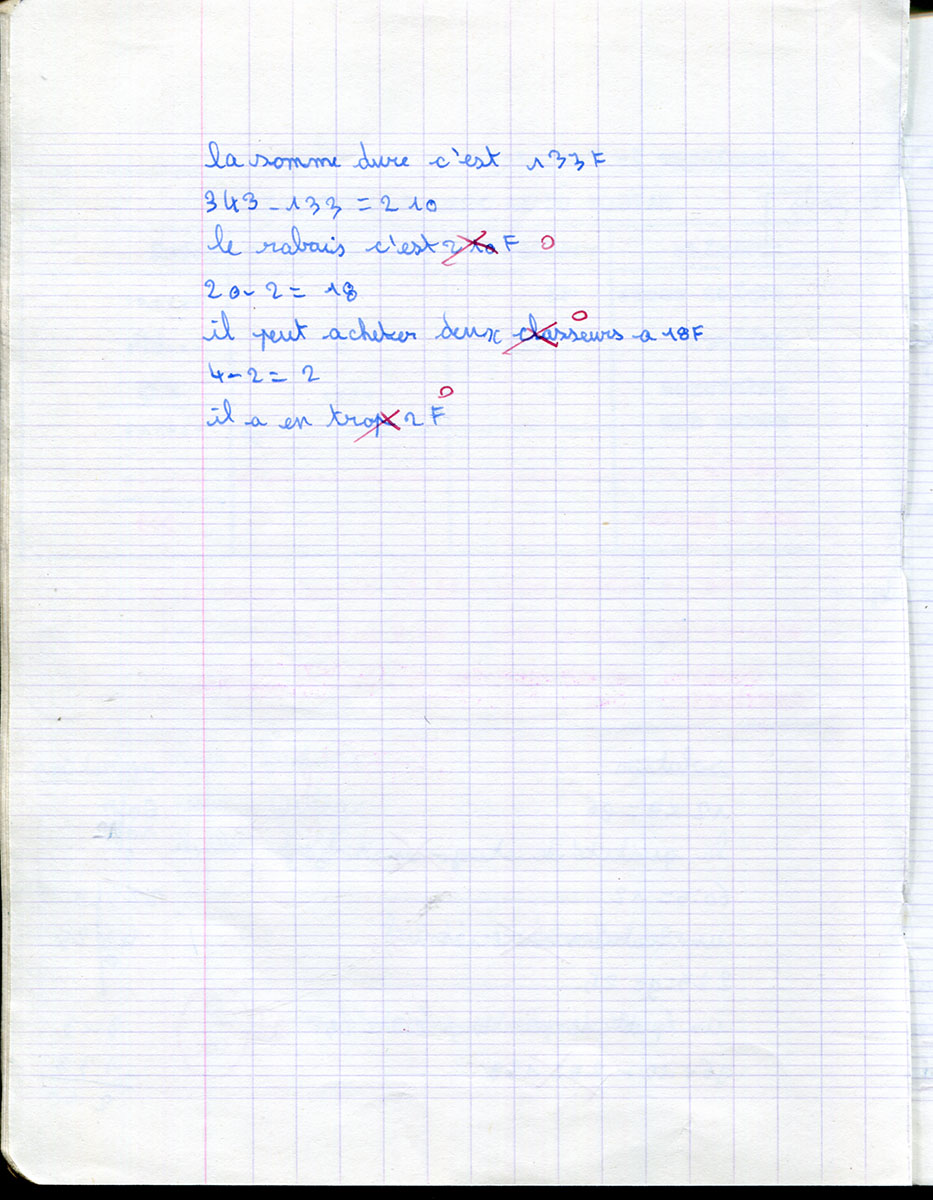 la somme dure c'est 133F
343-133=210
le rabais c'est 210F 0
20-2= 18
il peut acheter deux classeurs a 18F 0
4-2= 2
il a en trop 2F 0